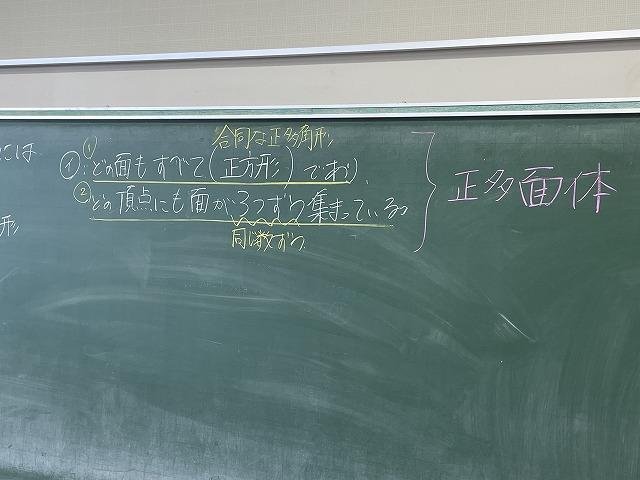 合同な正多角形
① ㋑:どの面もすべて(正方形)であり、
② どの頂点にも面が3つずつ集まっている。
同じ数ずつ
正多面体
には
形